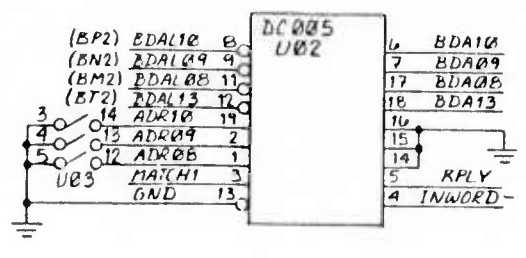 DC005
U02
(BP2) BDAL10 8
(BN2) BDAL09 9
(BM2) BDAL08 11
(BT2) BDAL13 12
3 14 ADR10 19
4 13 ADR09 2
5 12 ADR08 1
U03
MATCH1 3
GND 13
6 BDA10
7 BDA09
17 BDA08
18 BDA13
16
15
14
5 RPLY
4 INWORD-